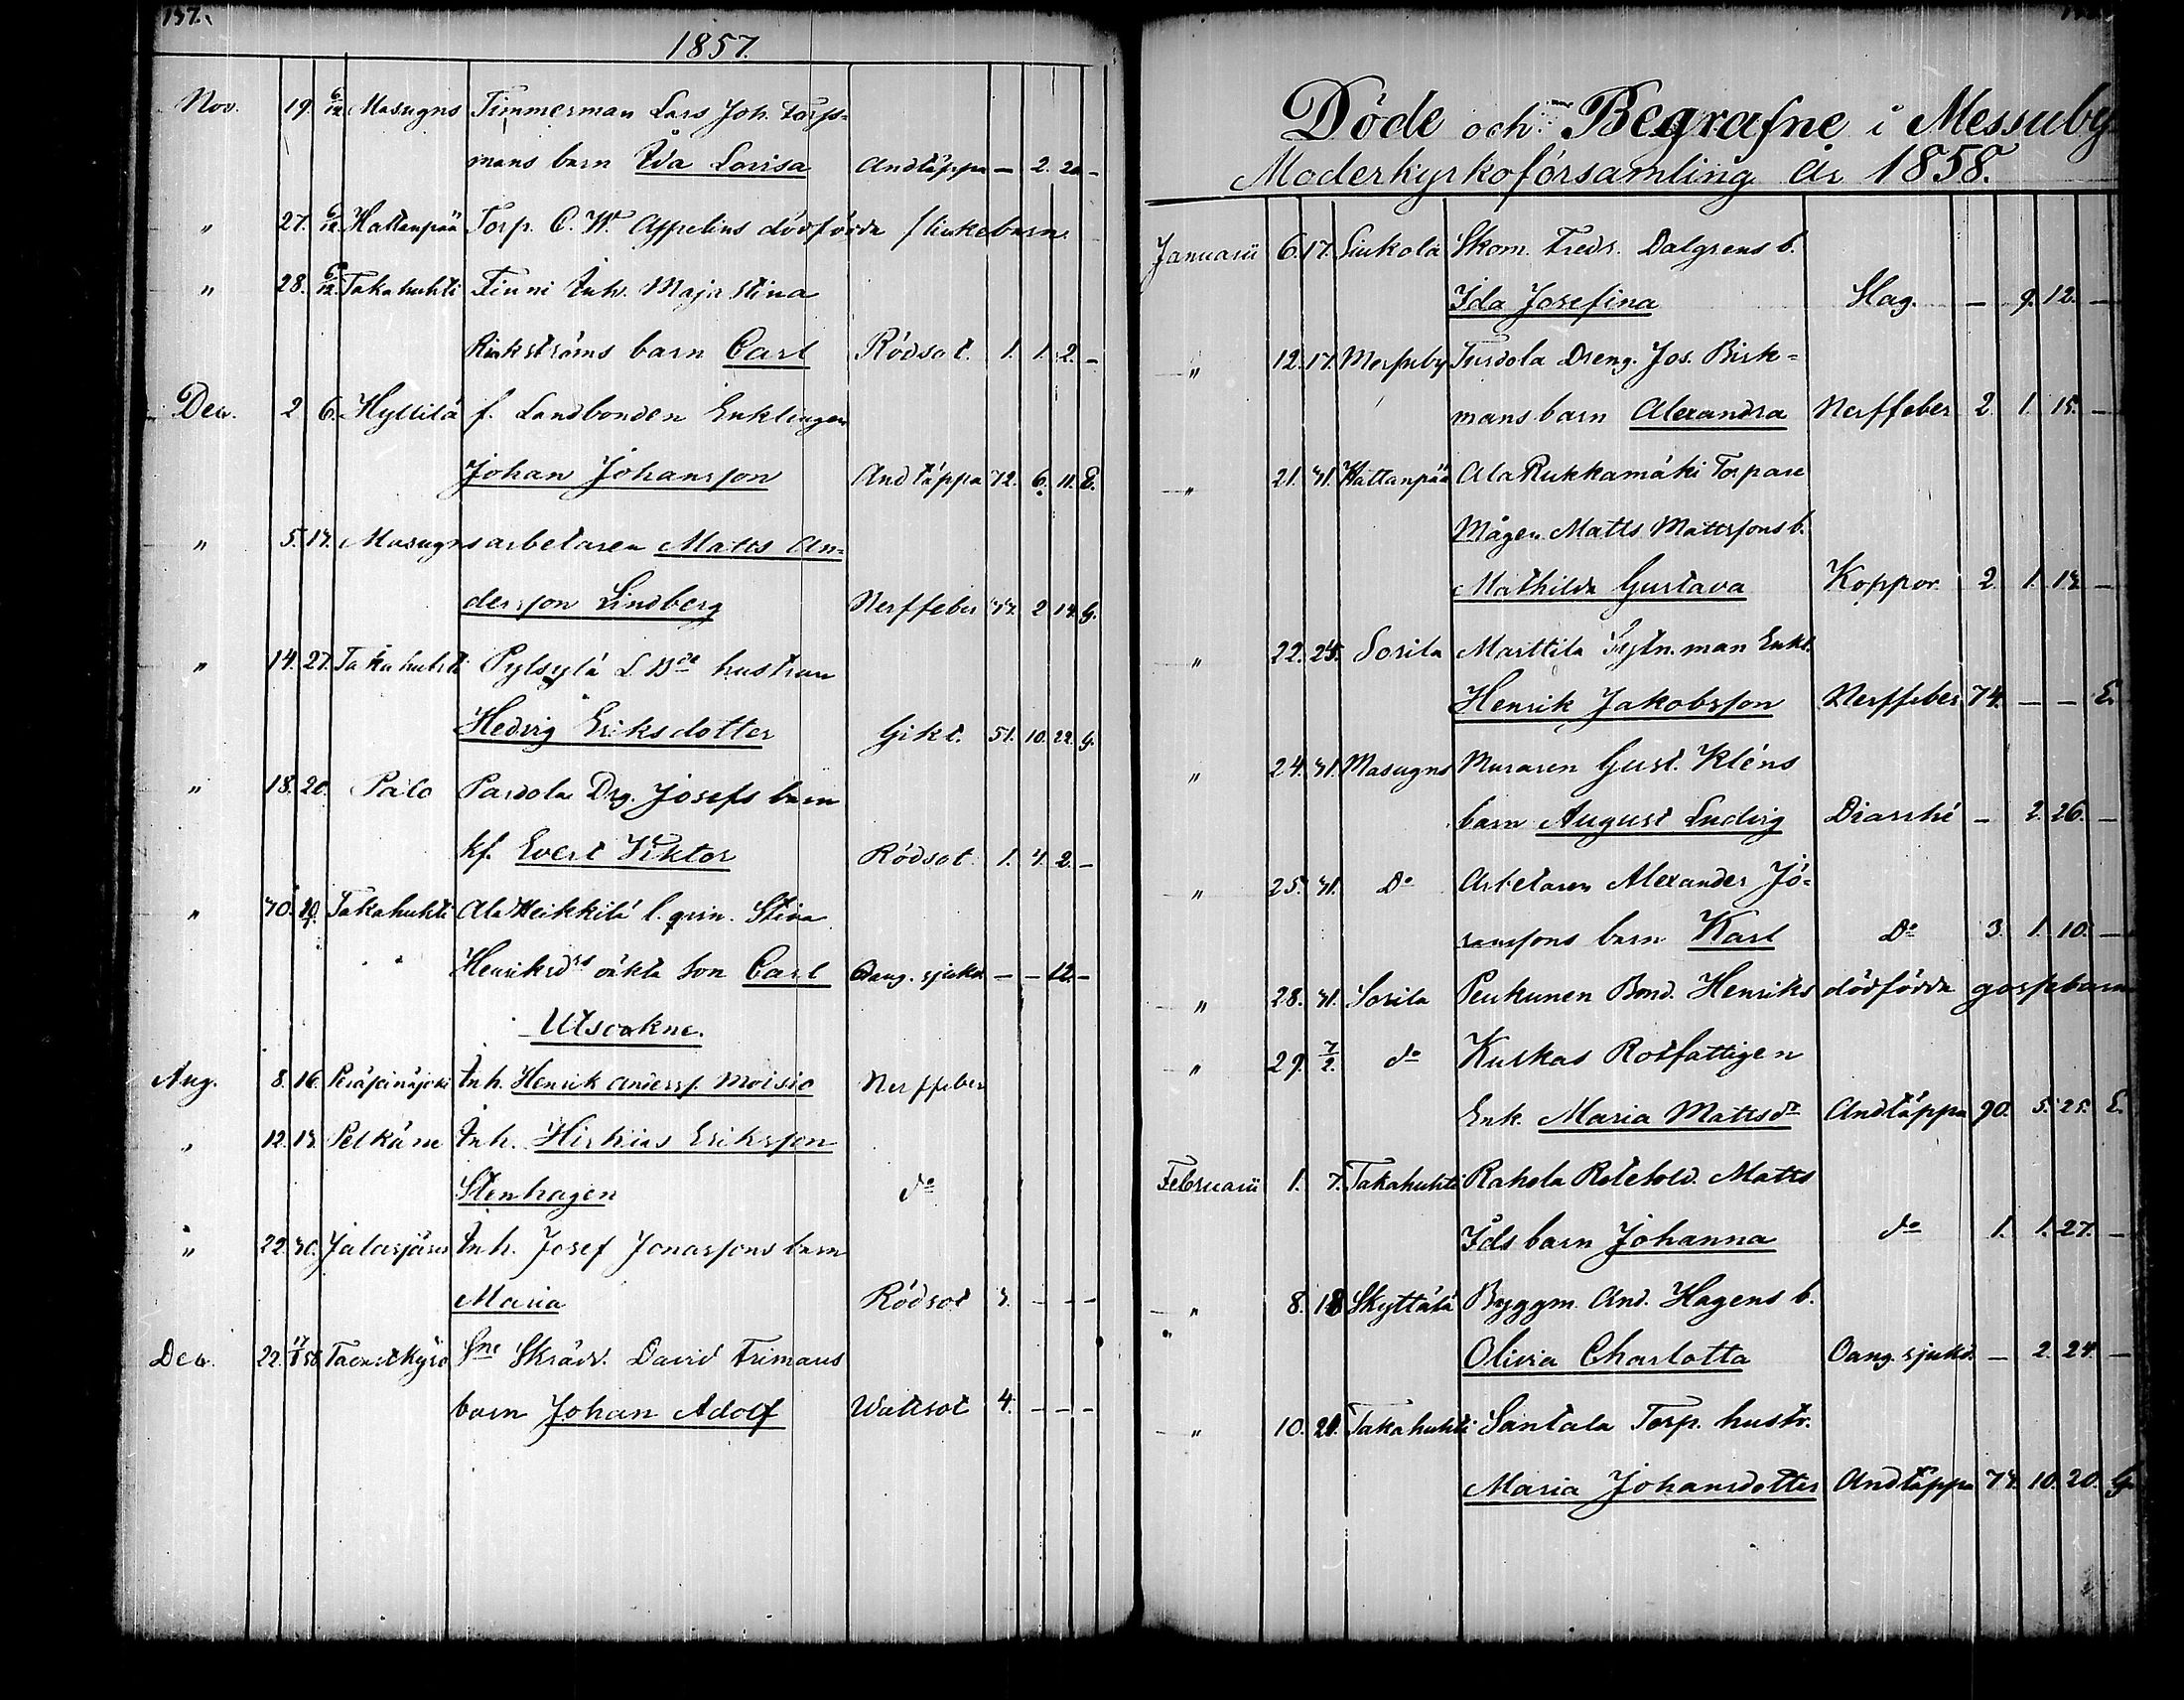 137.
1857.
Nov. 19. 6/12 Masugns Timmerman Lars Joh. Torss-
mans barn Ida Lovisa Andtäppa — 2. 20 —
" 27. 6/12 Hattanpää Torp. C. W. Appelins dödfödda flickebarn.
" 28. 6/12 Takahuhti Finni Inh. Maja Stina
Rinkströms barn Carl Rödsot. 1. 1. 2. —
Dec. 2 6. Hyllilä f. Landbonden Enklingen
Johan Johansson Andtäppa 72. 6. 11. E.
" 5. 13. Masugnsarbetaren Matts An-
dersson Lindberg Nerffeber 43. 2 14. G.
" 14. 27. Takahuhti Pylsylä L. Bde hustrun
Hedvig Eriksdotter Gikt. 51. 10. 22. G.
" 18. 20. Palo Pardola Drg. Josefs barn
kf. Evert Viktor Rödsot 1. 4. 2. —
" 30. Takahuhti Ala Heikkilä l. qvin. Stina
Henriksdrs oäkta Son Carl Oang. sjukd. — — 12. —
Utsockne.
Aug. 8. 16. Peräseinäjoki Inh. Henrik Anderss. Moisio Nerffeber
" 12. 13. Pelkäne Inh. Hiskias Eriksson
Stenhagen do
" 22. 30. Jalasjärvi Inh. Josef Jonassons barn
Maria Rödsot 3. — — —
Dec. 22. 17/1 58 Tavastkyrö Sne Skrädd. David Frimans
barn Johan Adolf Wattsot 4. — — —
Döde och Begrafne i Messuby
Moderkyrkoförsamling År 1858.
Januarii 6. 17. Liukola Skom. Fredr. Dalgrens b.
Ida Josefina Slag. — 9. 12. —
" 12. 17. Messuby Turdola Dreng. Jos. Birk-
mans barn Alexandra Nerffeber 2. 1. 15. —
" 21. 31. Hattanpää Ala Rukkamäki Torpare
Mågen Matts Mattssons b.
Mathilda Gustava Koppor. 2. 1. 13. —
" 22. 25. Sorila Marttila Sytn. man Enkl.
Henrik Jakobsson Nerffeber 74. — — E.
" 24. 31. Masugns Muraren Gust. Kléns
barn August Ludvig Diarrhé — 2. 26. —
" 25. 31. Do Arbetaren Alexander Jö-
ranssons barn Karl Do 3. 1. 10. —
" 28. 31. Sorila Penkunen Bond. Henriks dödfödda gossebarn
" 29. 7/2. do Kuskas Rotfattigen
Enk. Maria Mattsdr Andtäppa 90. 5. 25. E.
Februarii 1. 7. Takahuhti Rahola Rotehold. Matts
Ids barn Johanna do 1. 1. 27. —
" 8. 18 Skyttälä Byggm. And. Hagens b.
Olivia Charlotta Oang. sjukd. — 2. 24. —
" 10. 21. Takahuhti Santala Torp. hustr.
Maria Johansdotter Andtäppa 73. 10. 20. G.